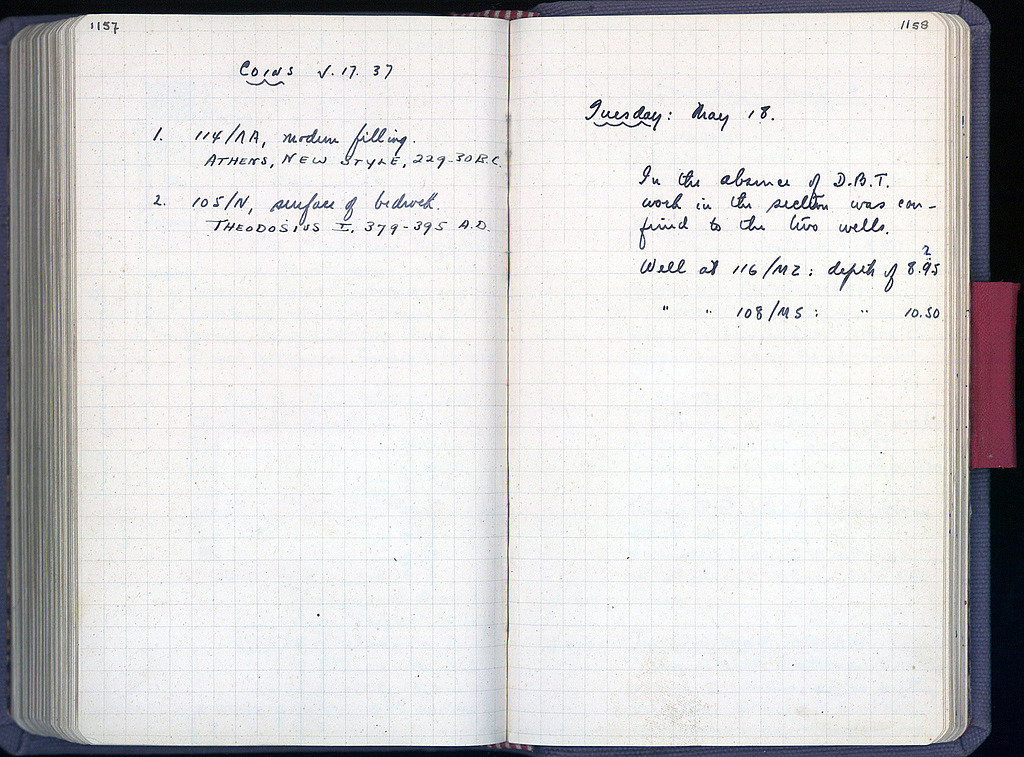 1157
Coins V. 17. 37
1. 114/ΛΑ, modern filling.
ATHENS, NEW STYLE, 229-30 B.C.
2. 105/N, surface of bedrock.
THEODOSIUS I, 379-395 A.D.
1158
Tuesday: May 18.
In the absence of D.B.T.
work in the section was con-
fined to the two wells.
2
Well at 116/ΜΖ: depth of 8.95
" " 108/ΜS: " 10.50